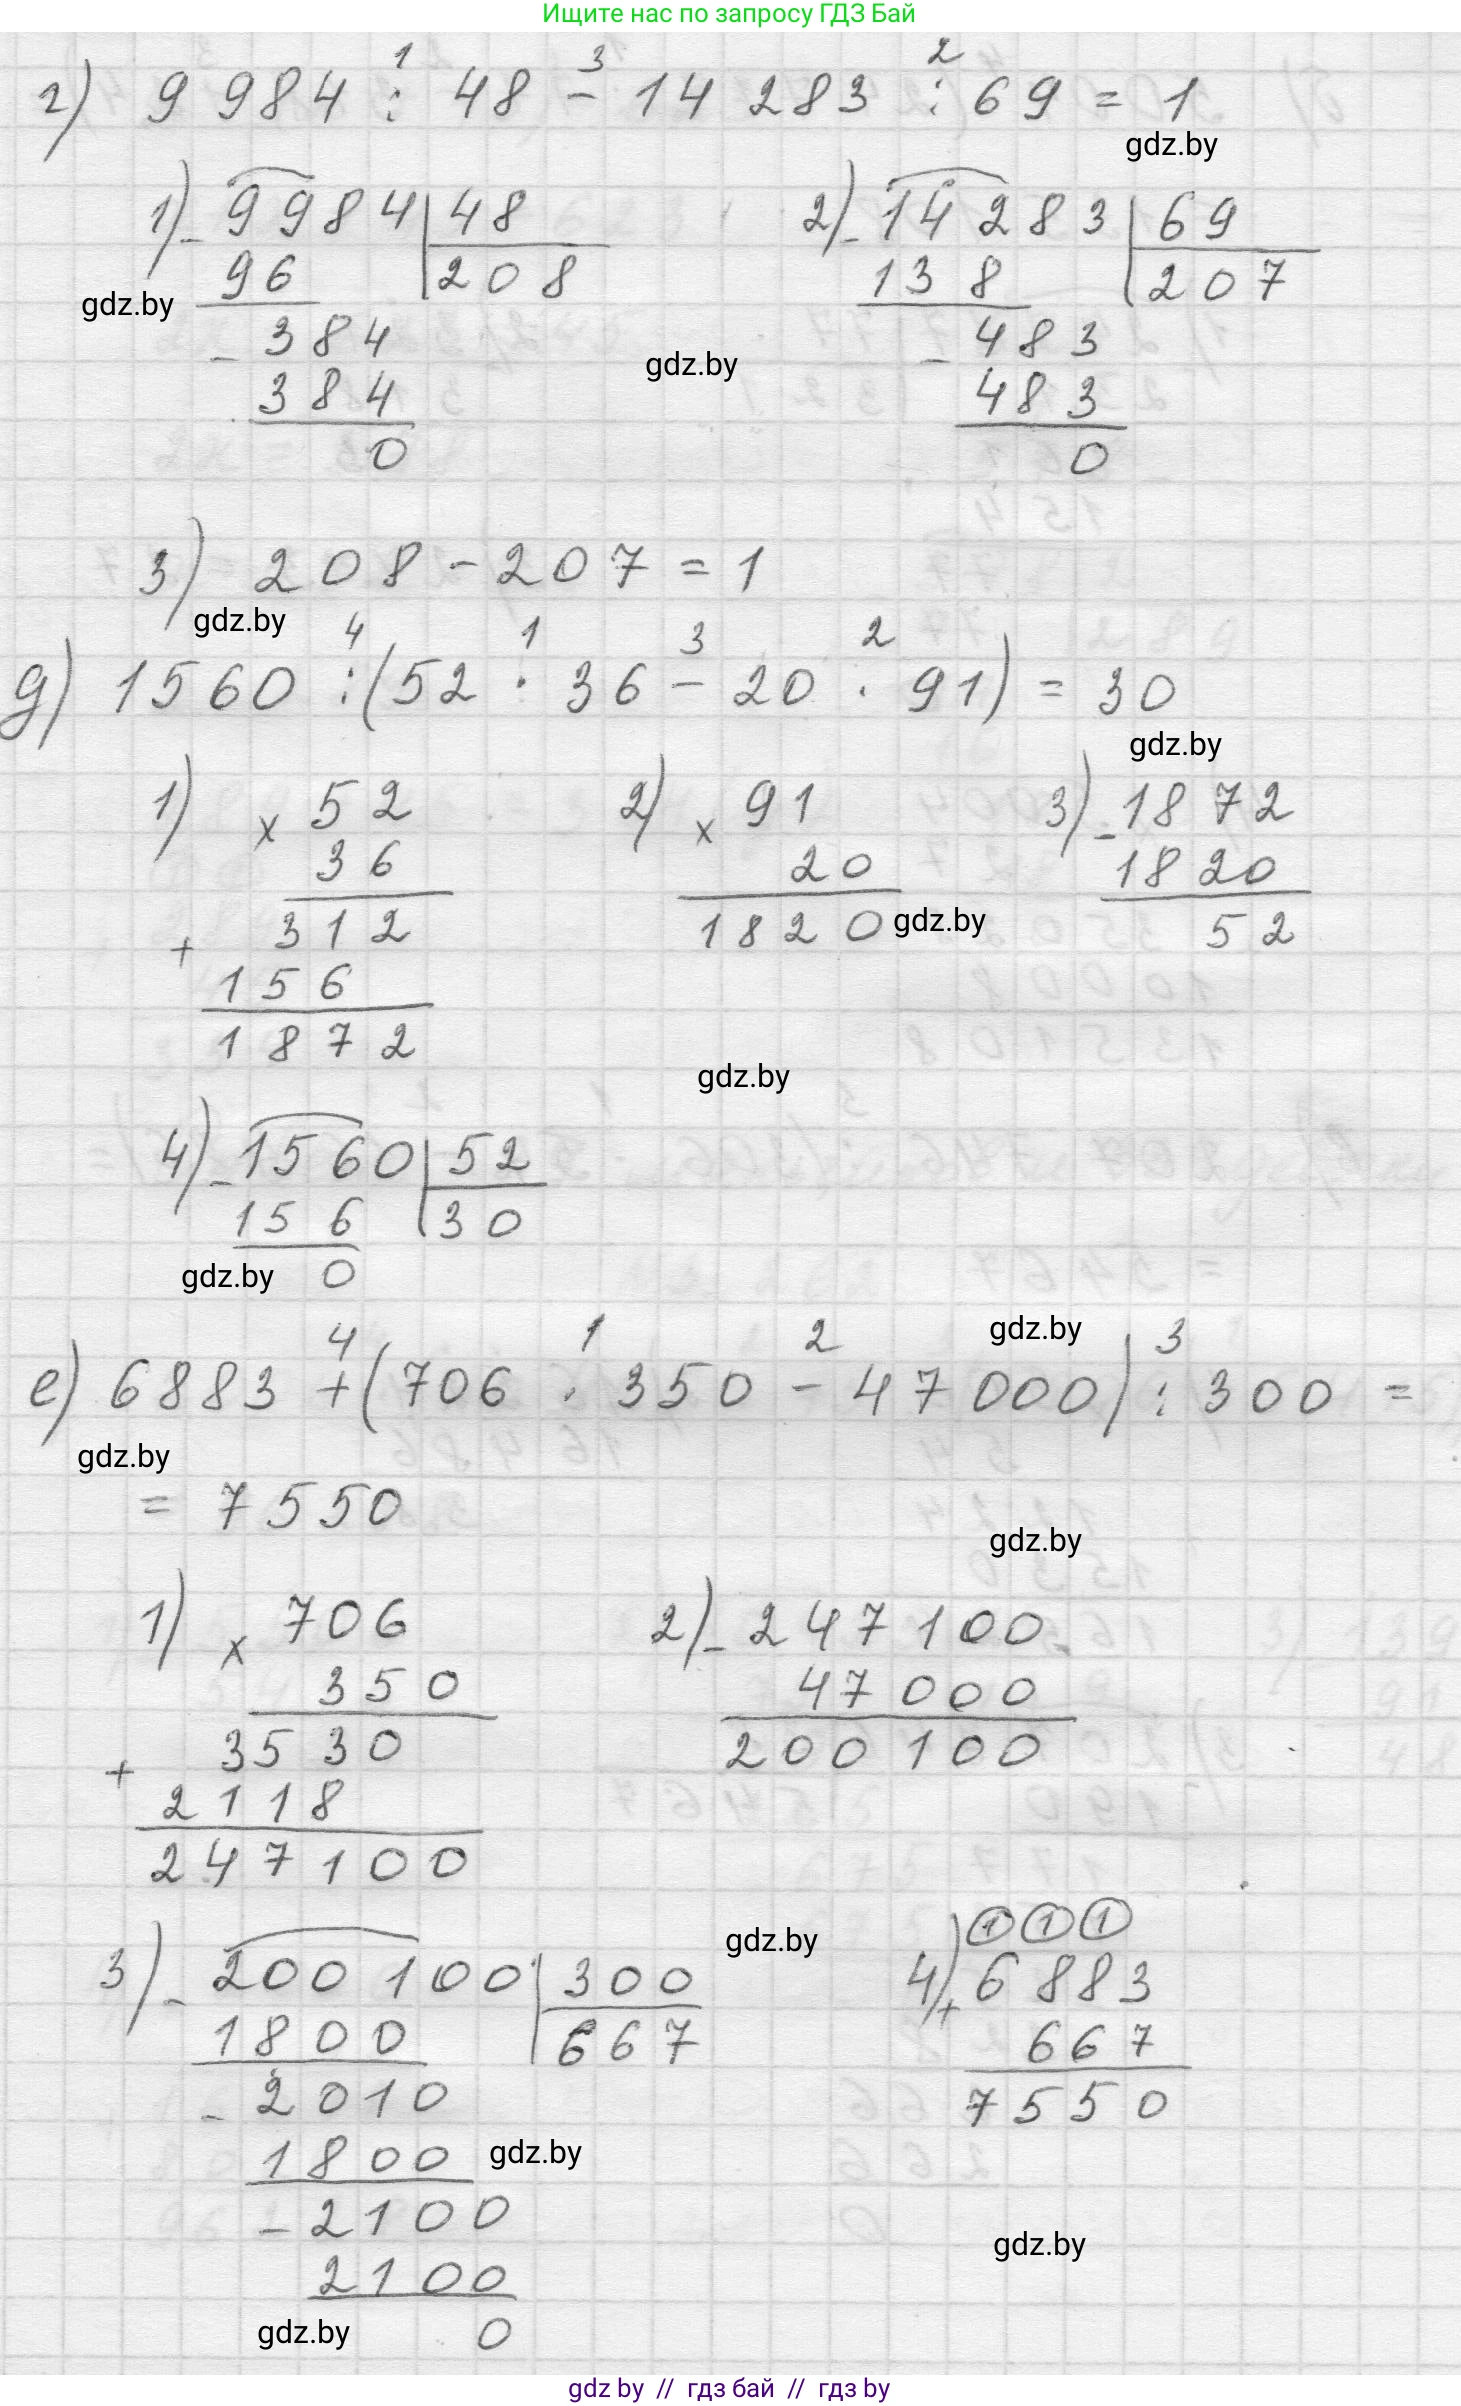 Ищите нас по запросу ГДЗ Бай
1 3 2
г) 9 984 : 48 - 14 283 : 69 = 1
gdz.by
1) - 9984 | 48 2) - 14 283 | 69
96 208 138 207
gdz.by
- 384 - 483
gdz.by
384 483
0 0
3) 208 - 207 = 1
gdz.by
4 1 3 2
д) 1560 : (52 · 36 - 20 · 91) = 30
gdz.by
1) × 52 2) × 91 3) - 1872
36 20 1820
+ 312 1820 52
gdz.by
156
1872
gdz.by
4) - 1560 | 52
156 30
gdz.by 0
gdz.by
4 1 2 3
е) 6883 + (706 · 350 - 47 000) : 300 =
gdz.by
= 7550
gdz.by
1) × 706 2) - 247 100
350 47 000
+ 3530 200 100
2118
247 100
gdz.by
1 1 1
3) - 200 100 | 300 4) + 6883
1800 667 667
- 2010 7550
1800
gdz.by
- 2100
gdz.by
2100
gdz.by 0
gdz by // гдз бай // гдз by